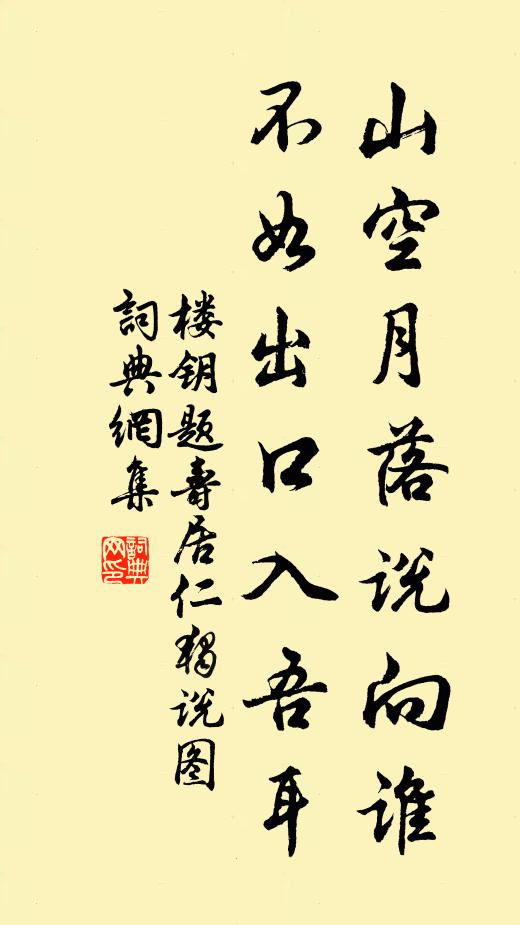 山空月落说向谁
不如出口入吾耳
楼钥题寿居仁独说图
詞典網集
詞典
网印